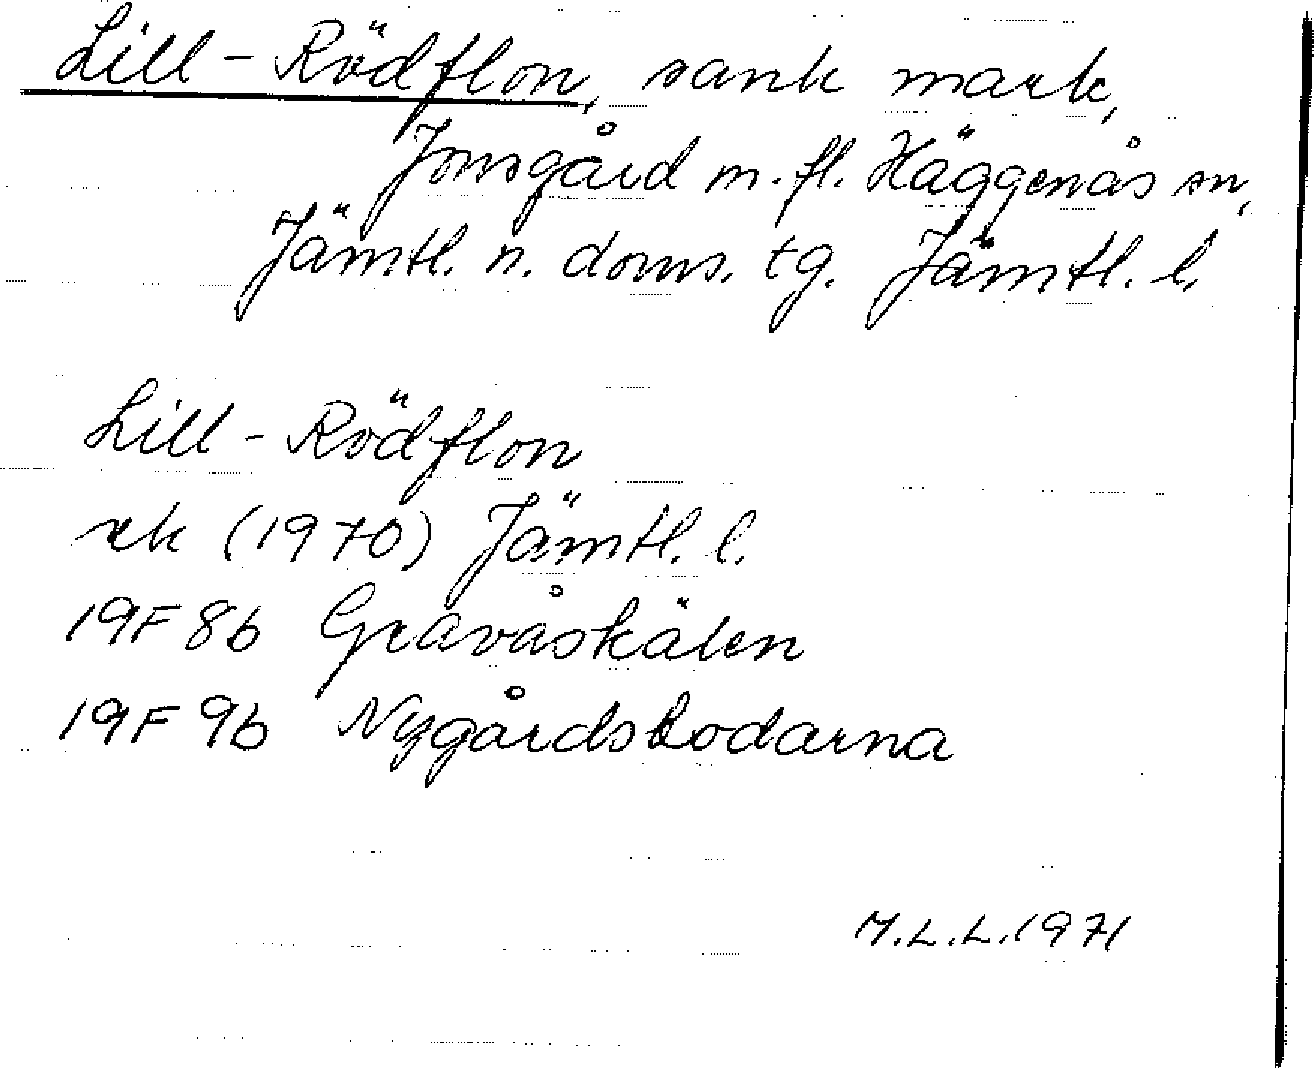 Lill-Rödflon, sank mark,
Jonsgård m. fl. Häggenås sn,
Jämtl. n. doms. tg. Jämtl. l.
Lill-Rödflon
rek (1970) Jämtl. l.
19F 8b Gravåskälen
19F 9b Nygårdsbodarna
M.L.L. 1971